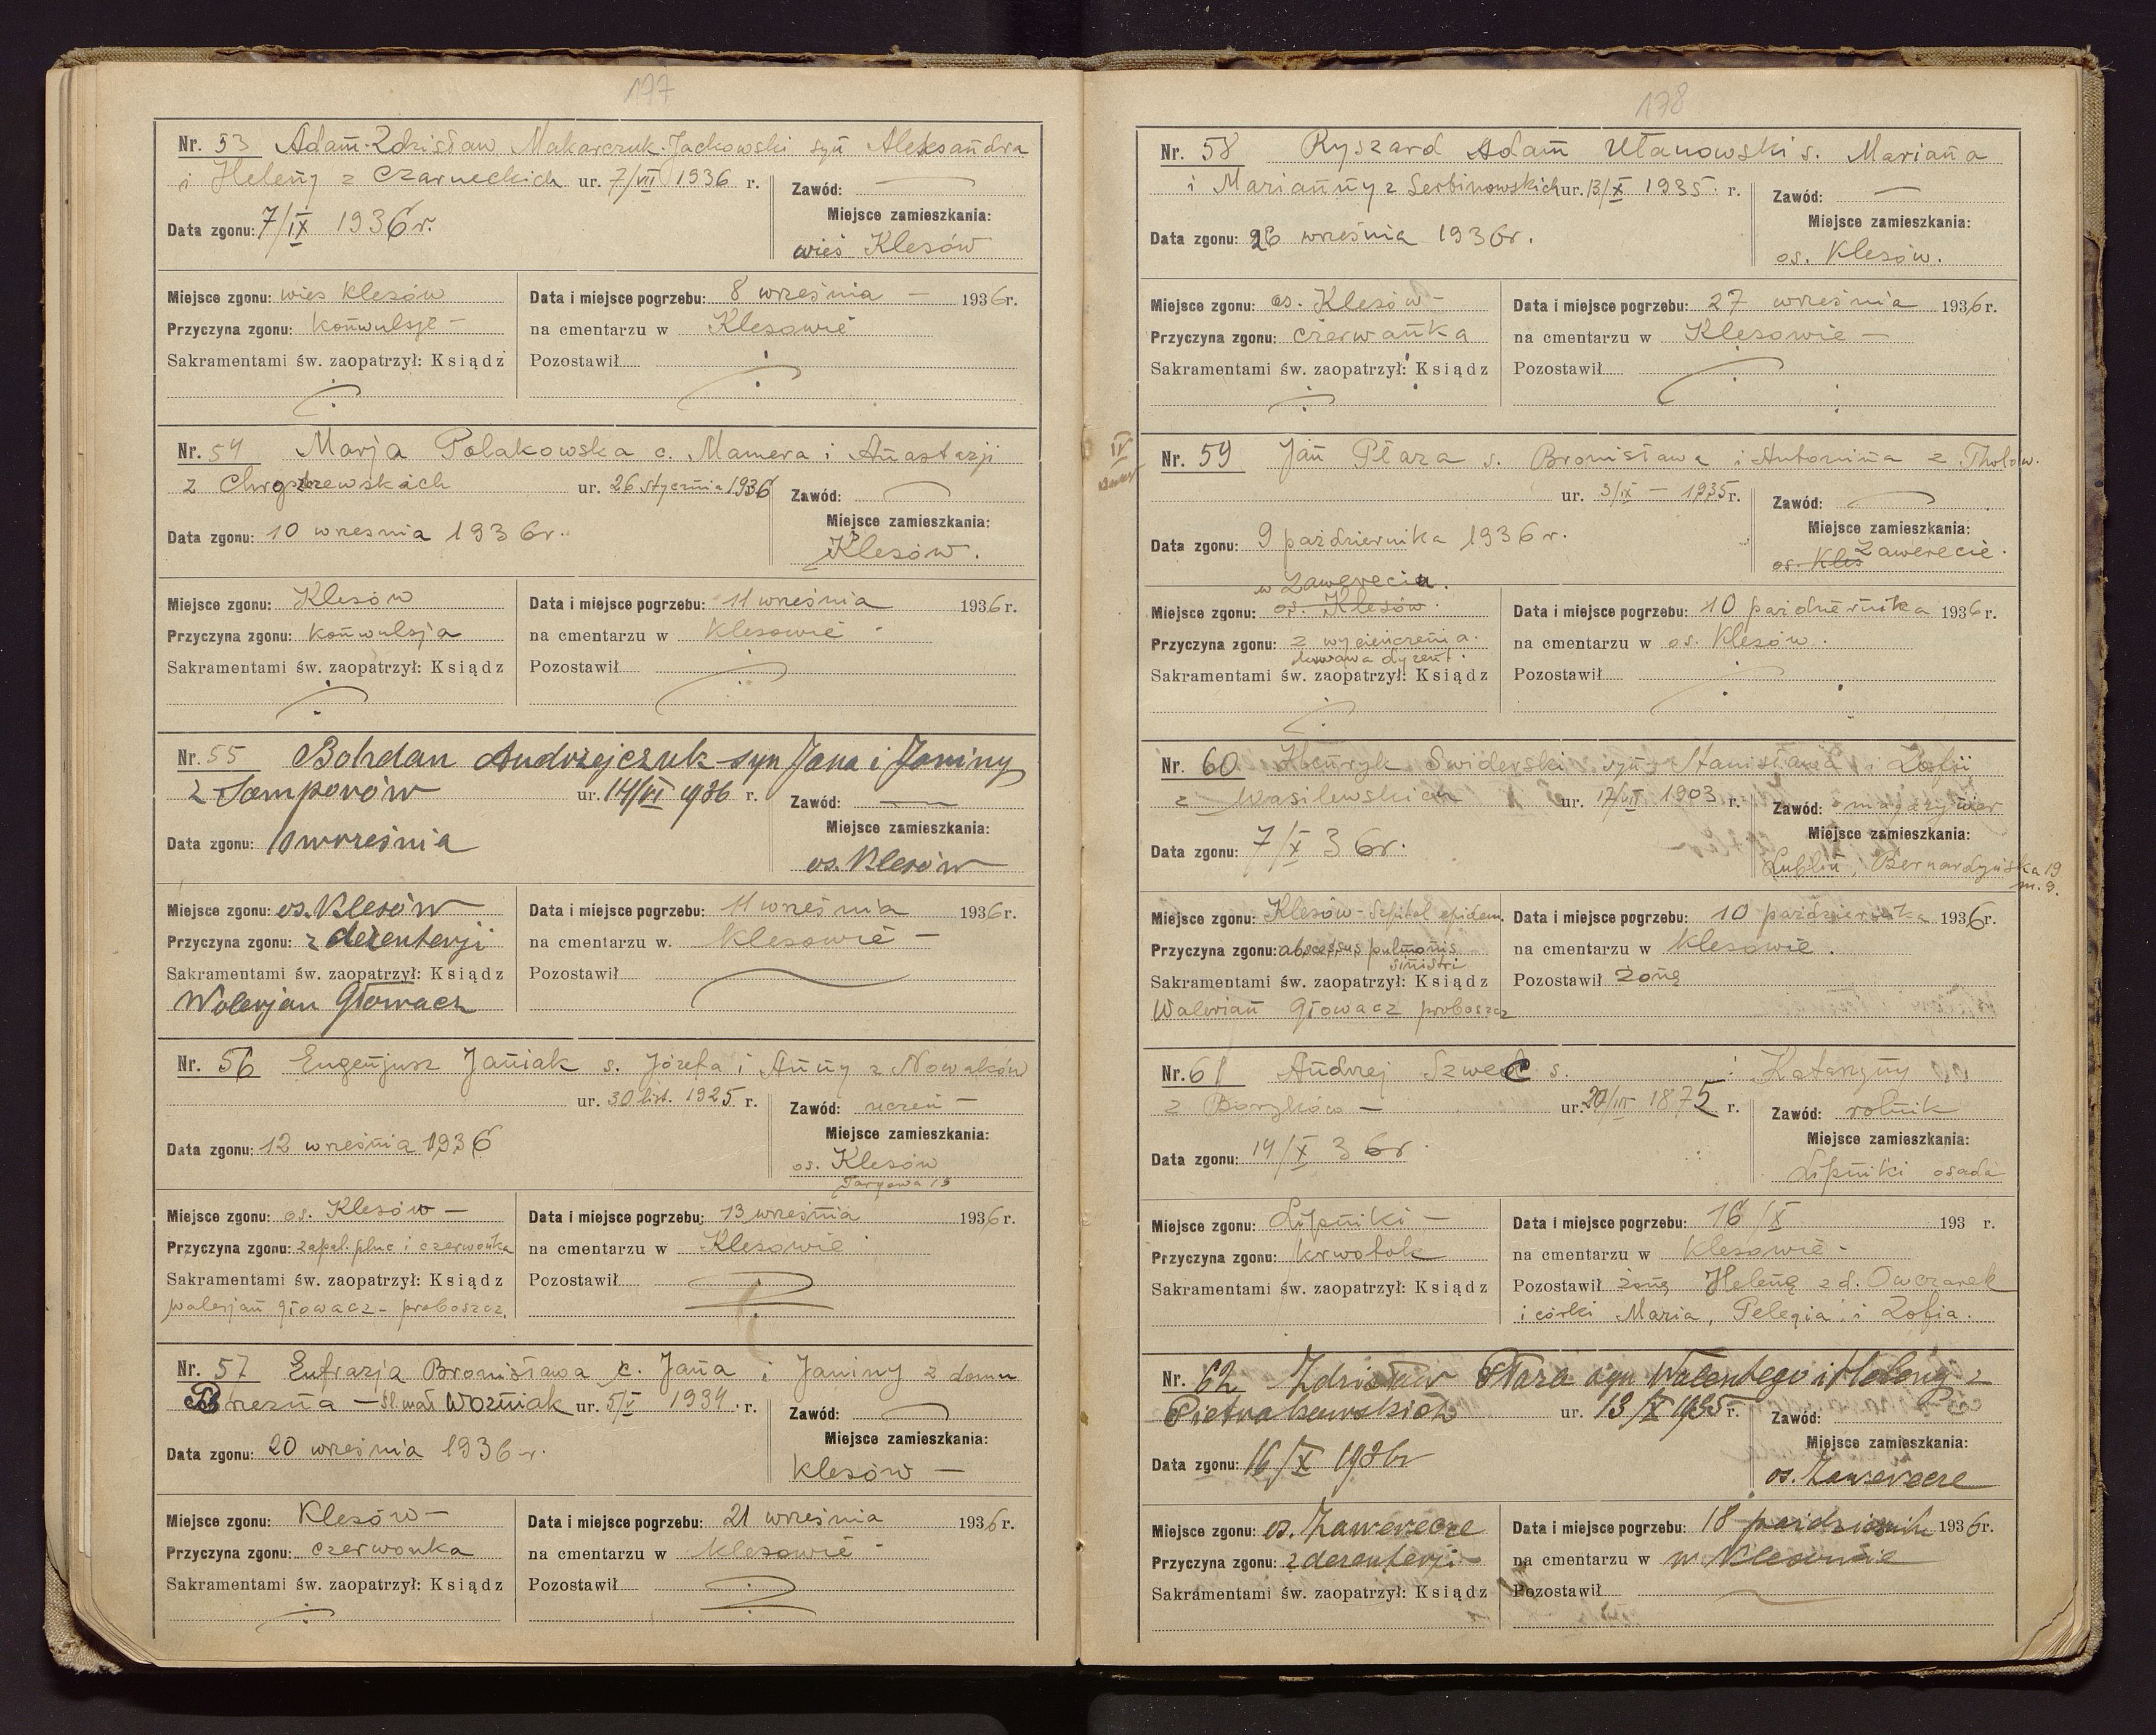 177
Nr. 53 Adam Zdzisław Makarczuk-Jackowski syn Aleksandra
i Heleny z Czarneckich ur. 7/VII 1936 r.
Zawód: —
Data zgonu: 7/IX 1936 r.
Miejsce zamieszkania:
wieś Klesów
Miejsce zgonu: wieś Klesów
Przyczyna zgonu: konwulsje —
Sakramentami św. zaopatrzył: Ksiądz
Data i miejsce pogrzebu: 8 września — 1936 r.
na cmentarzu w Klesowie
Pozostawił
Nr. 54 Marja Polakowska c. Mamera i Anastazji
z ur. 26 stycznia 1936
Zawód: —
Data zgonu: 10 września 1936 r.
Miejsce zamieszkania:
Klesów.
Miejsce zgonu: Klesów
Przyczyna zgonu: konwulsja
Sakramentami św. zaopatrzył: Ksiądz
Data i miejsce pogrzebu: 11 września 1936 r.
na cmentarzu w Klesowie
Pozostawił
Nr. 55 Bohdan Andrzejczuk syn Jana i Janiny
z Samporów ur. 14/VI 1936 r.
Zawód: —
Data zgonu: 10 września
Miejsce zamieszkania:
os. Klesów
Miejsce zgonu: os. Klesów
Przyczyna zgonu: z dezenterji
Sakramentami św. zaopatrzył: Ksiądz
Walerjan Głowacz
Data i miejsce pogrzebu: 11 września 1936 r.
na cmentarzu w. Klesowie —
Pozostawił
Nr. 56 Eugenjusz Janiak s. Józefa i Anny z Nowaków
ur. 30 list. 1925 r.
Zawód: uczeń —
Data zgonu: 12 września 1936
Miejsce zamieszkania:
os. Klesów
Targowa 13
Miejsce zgonu: os. Klesów —
Przyczyna zgonu: zapal. płuc i czerwonka
Sakramentami św. zaopatrzył: Ksiądz
Walerjan Głowacz - proboszcz
Data i miejsce pogrzebu: 13 września 1936 r.
na cmentarzu w Klesowie
Pozostawił
Nr. 57 Eufrazja Bronisława c. Jana i Janiny z domu
— Woźniak ur. 5/V 1934 r.
Zawód: —
Data zgonu: 20 września 1936 r.
Miejsce zamieszkania:
Klesów —
Miejsce zgonu: Klesów —
Przyczyna zgonu: czerwonka
Sakramentami św. zaopatrzył: Ksiądz
Data i miejsce pogrzebu: 21 września 1936 r.
na cmentarzu w Klesowie -
Pozostawił
178
Nr. 58 Ryszard Adam Ułanowski s. Mariana
i Marianny z Serbinowskich ur. 13/X 1935 r.
Zawód: —
Data zgonu: 26 września 1936 r.
Miejsce zamieszkania:
os. Klesów.
Miejsce zgonu: os. Klesów —
Przyczyna zgonu: czerwonka
Sakramentami św. zaopatrzył: Ksiądz
Data i miejsce pogrzebu: 27 września 1936 r.
na cmentarzu w Klesowie —
Pozostawił
IV
Nr. 59 Jan Płaza s. Bronisława i Antonina z
ur. 3/IX — 1935 r.
Zawód: —
Data zgonu: 9 października 1936 r.
Miejsce zamieszkania:
os. Kles Zawerecie.
w Zawereciu.
Miejsce zgonu: os. Klesów.
Przyczyna zgonu: z wycieńczenia.
krwawa dyzent.
Sakramentami św. zaopatrzył: Ksiądz
Data i miejsce pogrzebu: 10 października 1936 r.
na cmentarzu w os. Klesów.
Pozostawił
Nr. 60 Henryk Swiderski syn Stanisława i Zofii
z Wasilewskich ur. 17/VII 1903 r.
Zawód: magazynier
Data zgonu: 7/X 36 r.
Miejsce zamieszkania:
Lublin, Bernardyńska 19
m. 9.
Miejsce zgonu: Klesów - Szpital epidem.
Przyczyna zgonu: abscessus pulmonis
sinistri
Sakramentami św. zaopatrzył: Ksiądz
Walerian Głowacz proboszcz
Data i miejsce pogrzebu: 10 października 1936 r.
na cmentarzu w Klesowie.
Pozostawił żonę
Nr. 61 Andrzej Szwec s. i Katarzyny
z ur. 20/III 1875 r.
Zawód: rolnik
Data zgonu: 14/X 36 r.
Miejsce zamieszkania:
Lipniki osada
Miejsce zgonu: Lipniki —
Przyczyna zgonu: krwotok
Sakramentami św. zaopatrzył: Ksiądz
Data i miejsce pogrzebu: 16/X 193 r.
na cmentarzu w Klesowie -
Pozostawił żonę Helenę z d. Owczarek
i córki Maria, Pelegia i Zofia.
Nr. 62 Zdzisław Płaza syn Walentego i Heleny z
Pietrakowskich ur. 13/X 1935 r.
Zawód:
Data zgonu: 16/X 1936 r
Miejsce zamieszkania:
os. Zawerecze
Miejsce zgonu: os. Zawerecze
Przyczyna zgonu: z dezenterji —
Sakramentami św. zaopatrzył: Ksiądz
Data i miejsce pogrzebu: 18 październik 1936 r.
na cmentarzu w w Klesowie
Pozostawił